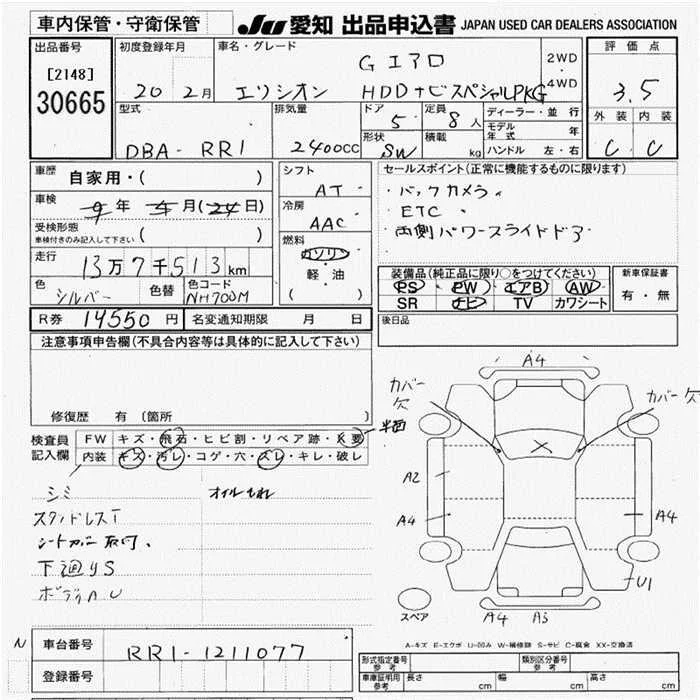 車内保管・守衛保管
JU 愛知 出品申込書 JAPAN USED CAR DEALERS ASSOCIATION
出品番号 [2148] 30665
初度登録年月 20 2月
車名・グレード エリシオン Gエアロ HDDナビスペシャルPKG
2WD ・ 4WD
評価点 3.5
外装 内装
C C
型式 DBA-RR1
排気量 2400CC
ドア 5
定員 8人
形状 SW
積載 kg
ディーラー・並行
モデル年式 年
ハンドル 左・右
車歴 自家用・( )
車検 9年 月(24日)
受検形態
車検付きのみ記入して下さい ( )
走行 13万7千513km
色 シルバー 色替 色コード NH700M
シフト AT
冷房 AAC
燃料 ガソリン
軽・油
( )
セールスポイント(正常に機能するものに限ります)
・バックカメラ
・ETC
・両側パワースライドドア
装備品(純正品に限り○をつけてください)
PS PW エアB AW
SR ナビ TV カワシート
新車保証書
有・無
R券 14550円 名変通知期限 月 日
後日品
注意事項申告欄(不具合内容等は具体的に記入して下さい)
修復歴 有(箇所 )
検査員記入欄
FW キズ・飛石・ヒビ割・リペア跡・X要
内装 キズ・汚レ・コゲ・穴・スレ・キレ・破レ
シミ オイルもれ
スタッドレスT
シートカバー取付、
下廻りS
ボディA U
A4
カバー欠
カバー欠
X
A2
A4
A4
U1
スペア
A4 A3
A-キズ E-エクボ U-凹み W-補修跡 S-サビ C-腐食 XX-交換済
N
車台番号 RR1-1211077
登録番号
形式指定番号参考
類別区分番号参考
車庫証明用参考 長さ cm 幅 cm 高さ cm